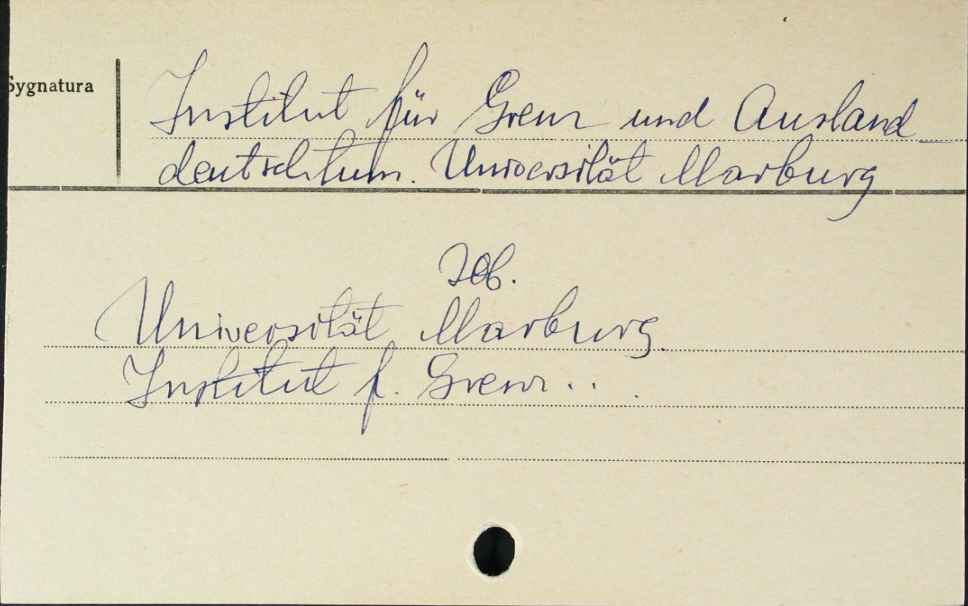 Sygnatura
Institut für Grenz und Ausland
deutschtum. Universität Marburg
zob.
Universität Marburg.
Institut f. Grenz..